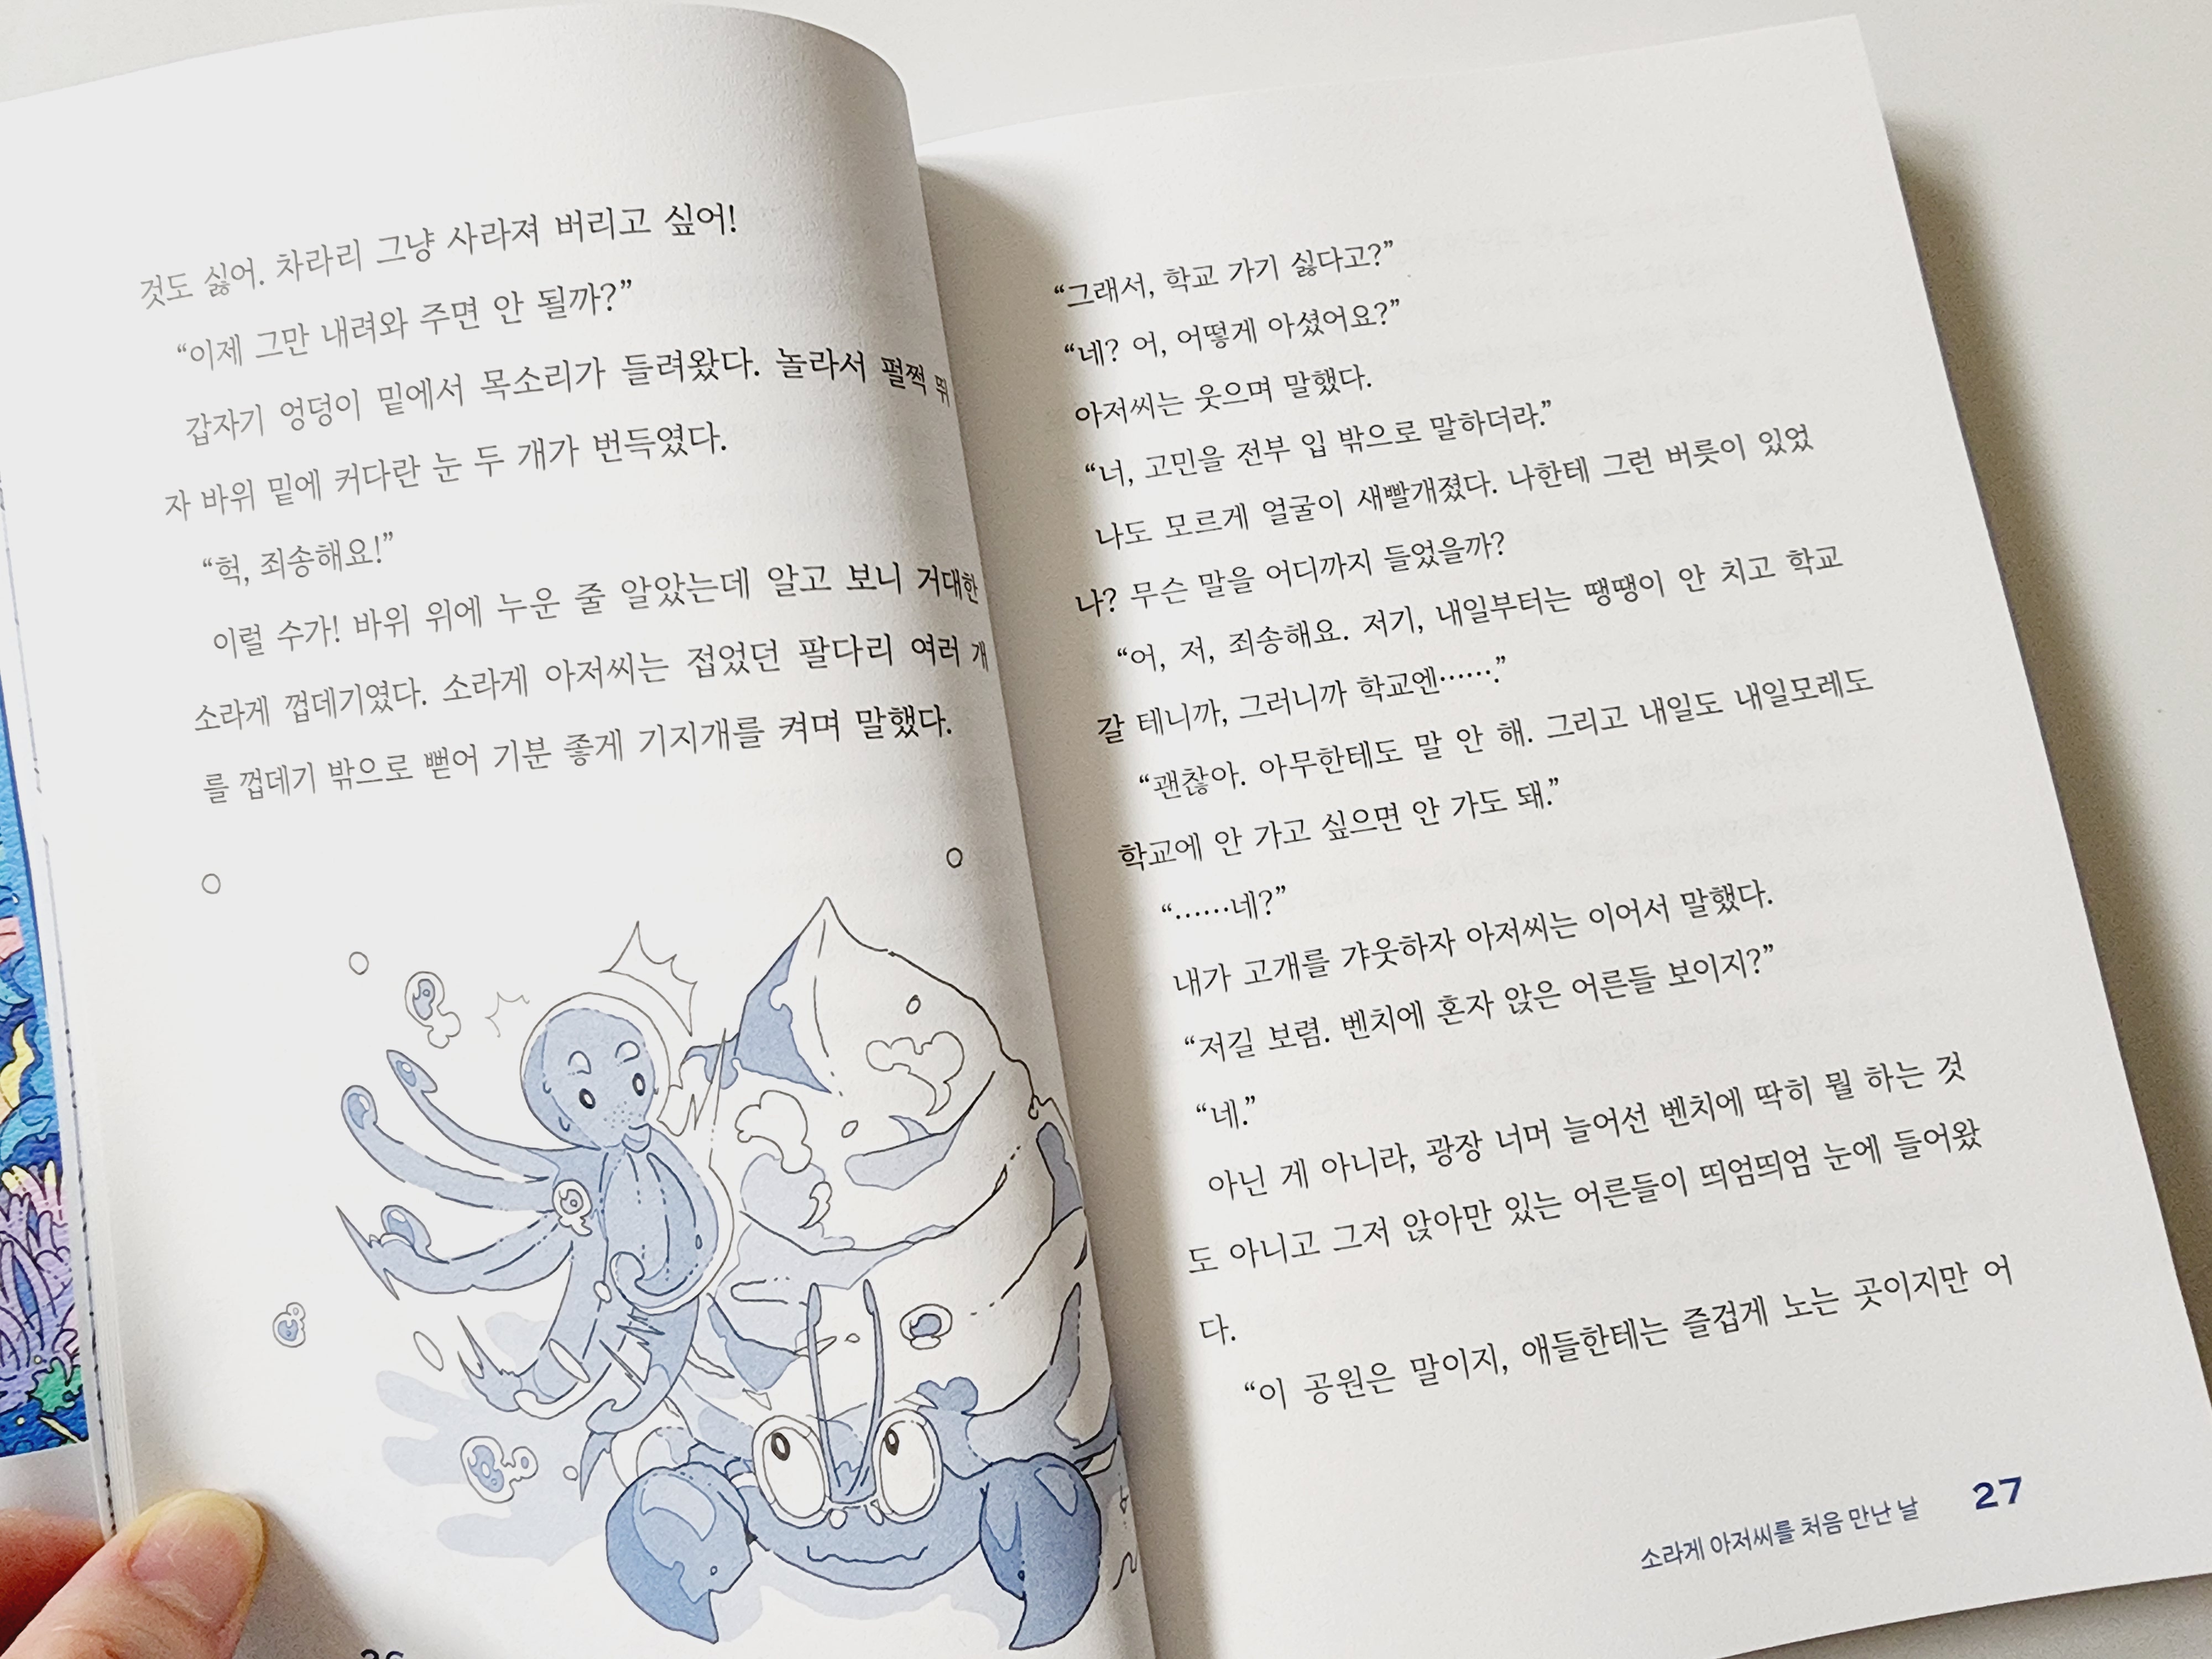 것도 싫어. 차라리 그냥 사라져 버리고 싶어!
“이제 그만 내려와 주면 안 될까?”
갑자기 엉덩이 밑에서 목소리가 들려왔다. 놀라서 펄쩍 뛰
자 바위 밑에 커다란 눈 두 개가 번득였다.
“헉, 죄송해요!”
이럴 수가! 바위 위에 누운 줄 알았는데 알고 보니 거대한
소라게 껍데기였다. 소라게 아저씨는 접었던 팔다리 여러 개
를 껍데기 밖으로 뻗어 기분 좋게 기지개를 켜며 말했다.
“그래서, 학교 가기 싫다고?”
“네? 어, 어떻게 아셨어요?”
아저씨는 웃으며 말했다.
“너, 고민을 전부 입 밖으로 말하더라.”
나도 모르게 얼굴이 새빨개졌다. 나한테 그런 버릇이 있었
나? 무슨 말을 어디까지 들었을까?
“어, 저, 죄송해요. 저기, 내일부터는 땡땡이 안 치고 학교
갈 테니까, 그러니까 학교엔…….”
“괜찮아. 아무한테도 말 안 해. 그리고 내일도 내일모레도
학교에 안 가고 싶으면 안 가도 돼.”
“……네?”
내가 고개를 갸웃하자 아저씨는 이어서 말했다.
“저길 보렴. 벤치에 혼자 앉은 어른들 보이지?”
“네.”
아닌 게 아니라, 광장 너머 늘어선 벤치에 딱히 뭘 하는 것
도 아니고 그저 앉아만 있는 어른들이 띄엄띄엄 눈에 들어왔
다.
“이 공원은 말이지, 애들한테는 즐겁게 노는 곳이지만 어
소라게 아저씨를 처음 만난 날 27